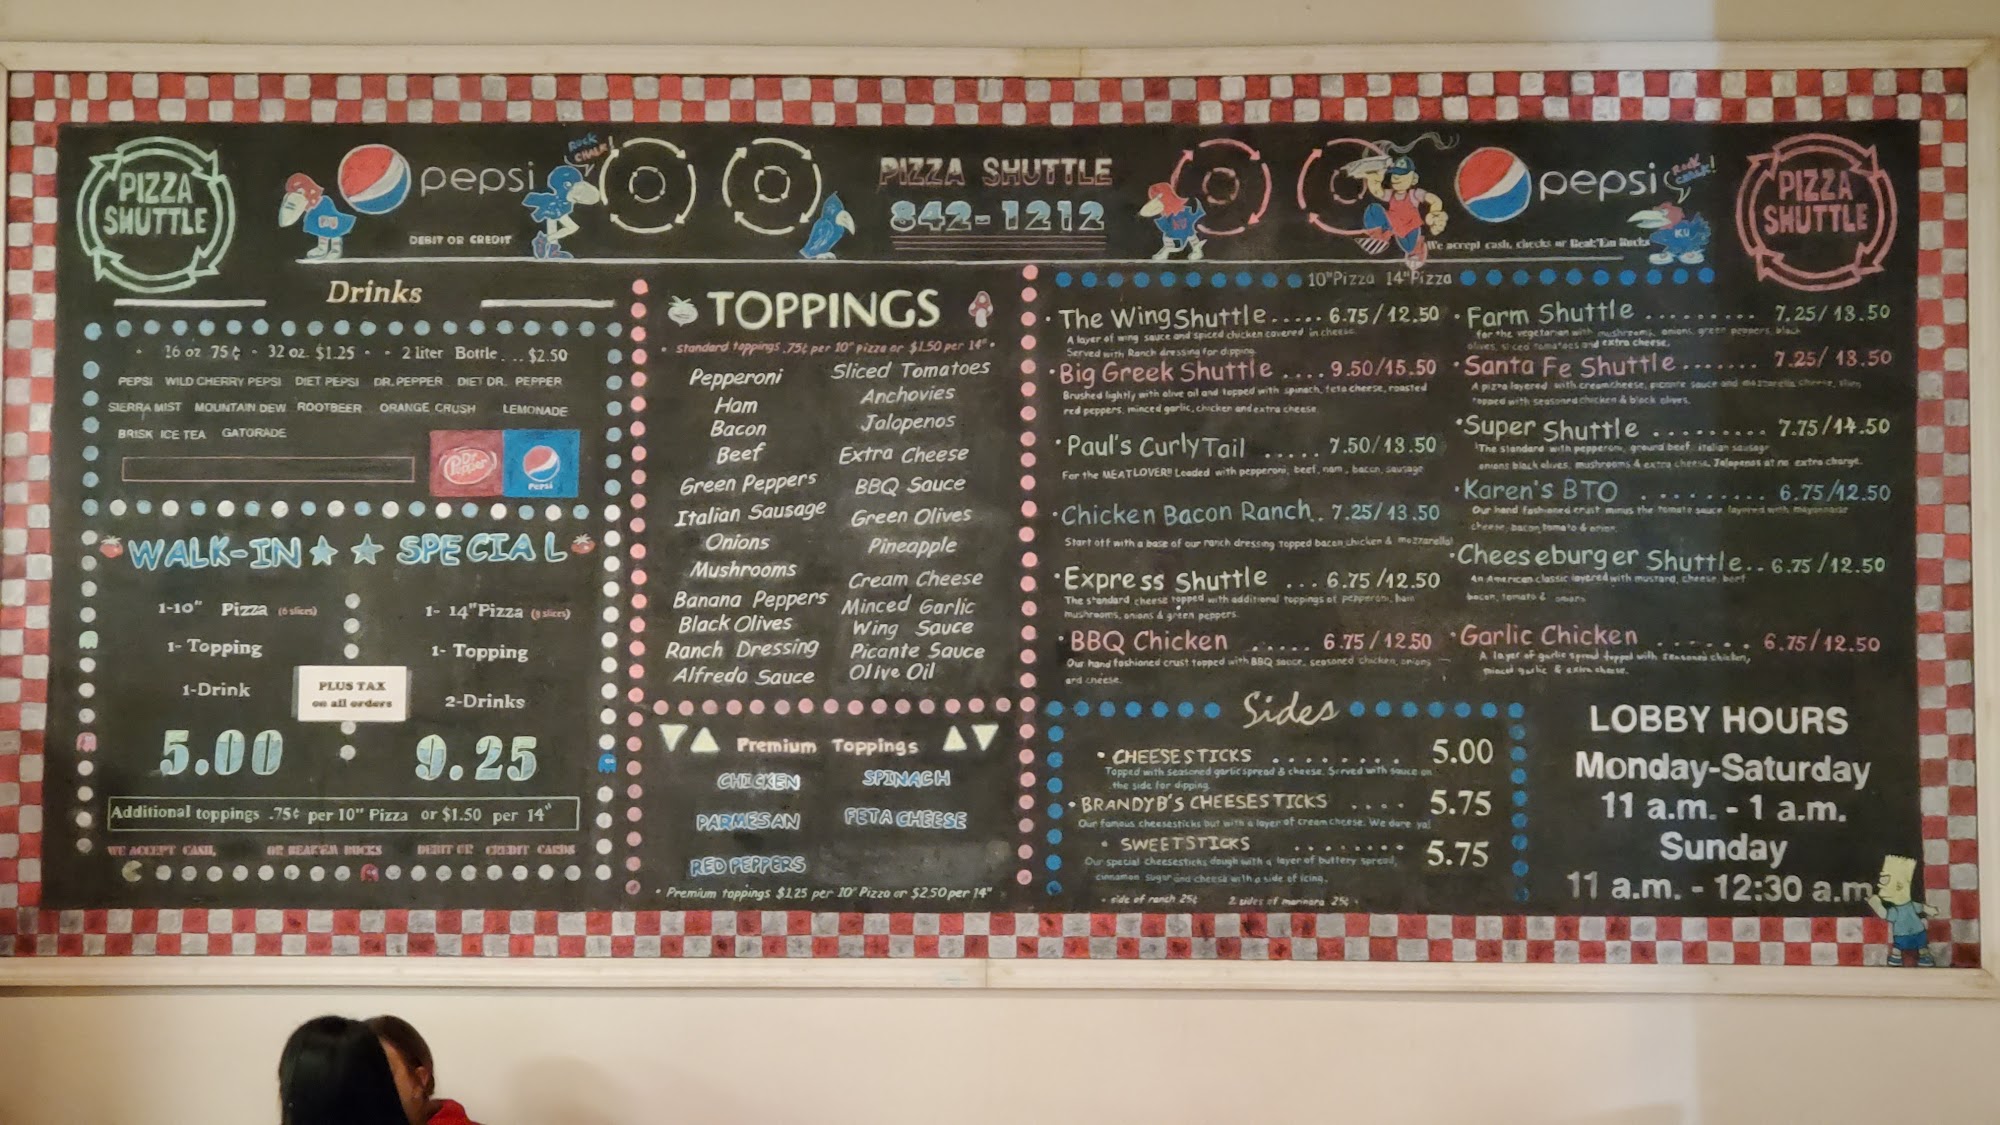 PIZZA
SHUTTLE
pepsi
ROCK
CHALK!
KU
DEBIT OR CREDIT
PIZZA SHUTTLE
842-1212
KU
pepsi
ROCK
CHALK!
KU
We accept cash, checks or Beak'Em Bucks
PIZZA
SHUTTLE
Drinks
16 oz 75¢ · 32 oz. $1.25 · · 2 liter Bottle... $2.50
PEPSI WILD CHERRY PEPSI DIET PEPSI DR. PEPPER DIET DR. PEPPER
SIERRA MIST MOUNTAIN DEW ROOTBEER ORANGE CRUSH LEMONADE
BRISK ICE TEA GATORADE
Dr Pepper
Pepsi
WALK-IN ★ ★ SPECIAL
1-10" Pizza (6 slices)
1- Topping
1-Drink
5.00
1- 14" Pizza (8 slices)
1- Topping
2-Drinks
9.25
PLUS TAX
on all orders
Additional toppings .75¢ per 10" Pizza or $1.50 per 14"
WE ACCEPT CASH, OR BEAK'EM BUCKS DEBIT OR CREDIT CARDS
TOPPINGS
• standard toppings .75¢ per 10" pizza or $1.50 per 14" •
Pepperoni
Ham
Bacon
Beef
Green Peppers
Italian Sausage
Onions
Mushrooms
Banana Peppers
Black Olives
Ranch Dressing
Alfredo Sauce
Sliced Tomatoes
Anchovies
Jalapenos
Extra Cheese
BBQ Sauce
Green Olives
Pineapple
Cream Cheese
Minced Garlic
Wing Sauce
Picante Sauce
Olive Oil
Premium Toppings
CHICKEN
PARMESAN
RED PEPPERS
SPINACH
FETA CHEESE
• Premium toppings $1.25 per 10" Pizza or $2.50 per 14"
10"Pizza 14"Pizza
· The Wing Shuttle..... 6.75/12.50
A layer of wing sauce and spiced chicken covered in cheese.
Served with Ranch dressing for dipping.
· Big Greek Shuttle .... 9.50/15.50
Brushed lightly with olive oil and topped with spinach, feta cheese, roasted
red peppers, minced garlic, chicken and extra cheese.
· Paul's Curly Tail ..... 7.50/13.50
For the MEATLOVER!! Loaded with pepperoni, beef, ham, bacon, sausage
· Chicken Bacon Ranch.. 7.25/13.50
Start off with a base of our ranch dressing topped bacon, chicken & mozzarella!
· Express Shuttle ... 6.75/12.50
The standard cheese topped with additional toppings of pepperoni, ham
mushrooms, onions & green peppers.
· BBQ Chicken ..... 6.75/12.50
Our hand fashioned crust topped with BBQ sauce, seasoned chicken, onions
and cheese.
· Farm Shuttle ......... 7.25/13.50
For the vegetarian with mushrooms, onions, green peppers, black
olives, sliced tomatoes and extra cheese.
· Santa Fe Shuttle....... 7.25/13.50
A pizza layered with cream cheese, picante sauce and mozzarella cheese, then
topped with seasoned chicken & black olives.
· Super Shuttle ......... 7.75/14.50
The standard with pepperoni, ground beef, italian sausage
onions black olives, mushrooms & extra cheese. Jalapenos at no extra charge.
· Karen's BTO ......... 6.75/12.50
Our hand fashioned crust minus the tomato sauce, layered with mayonnaise
cheese, bacon, tomato & onion.
· Cheeseburger Shuttle.. 6.75/12.50
An American classic layered with mustard, cheese, beef
bacon, tomato & onions
· Garlic Chicken ...... 6.75/12.50
A layer of garlic spread topped with seasoned chicken,
minced garlic & extra cheese.
Sides
• CHEESESTICKS ........ 5.00
Topped with seasoned garlic spread & cheese. Served with sauce on
the side for dipping.
• BRANDYB'S CHEESESTICKS .... 5.75
Our famous cheesesticks but with a layer of cream cheese. We dare ya!
• SWEETSTICKS ........ 5.75
Our special cheesesticks dough with a layer of buttery spread,
cinnamon sugar and cheese with a side of icing.
• side of ranch 25¢ 2 sides of marinara 25¢ •
LOBBY HOURS
Monday-Saturday
11 a.m. - 1 a.m.
Sunday
11 a.m. - 12:30 a.m.